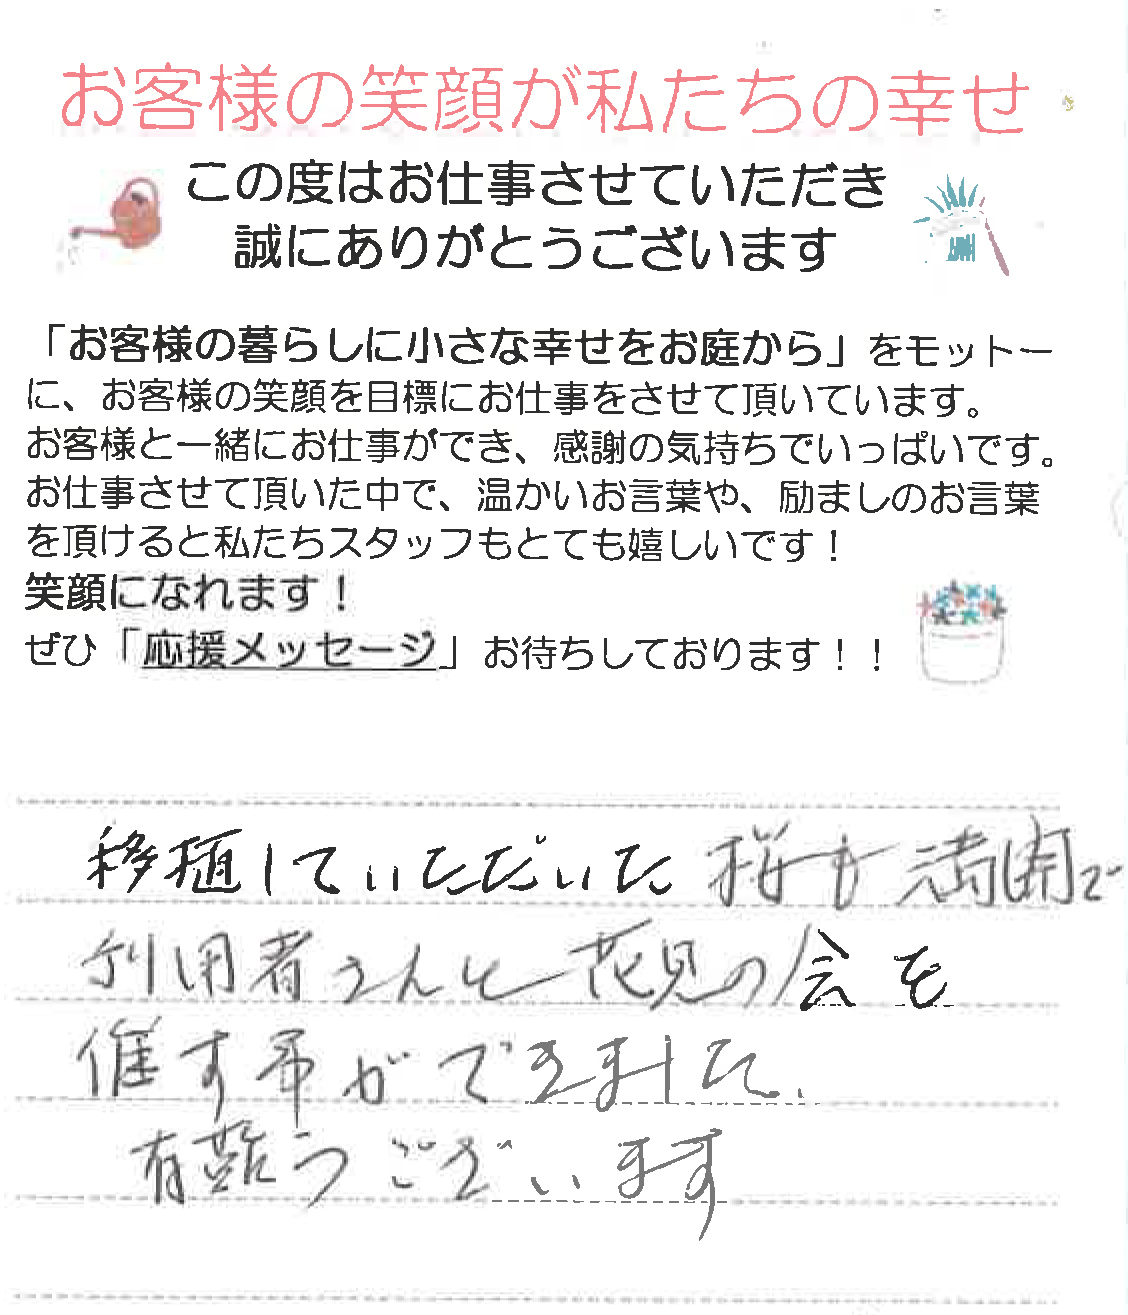 お客様の笑顔が私たちの幸せ
この度はお仕事させていただき
誠にありがとうございます
「お客様の暮らしに小さな幸せをお庭から」をモットー
に、お客様の笑顔を目標にお仕事をさせて頂いています。
お客様と一緒にお仕事ができ、感謝の気持ちでいっぱいです。
お仕事させて頂いた中で、温かいお言葉や、励ましのお言葉
を頂けると私たちスタッフもとても嬉しいです！
笑顔になれます！
ぜひ「応援メッセージ」お待ちしております！！
移植していただいた桜も満開で
利用者さんと花見の会を
催す事ができました、
有難うございます